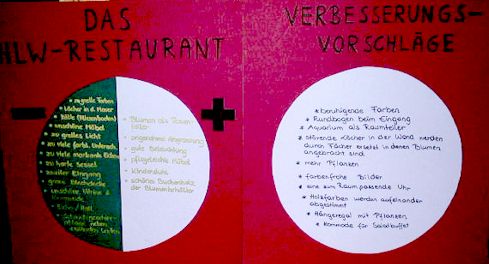 DAS
HLW-RESTAURANT
-
+
* zu grelle Farben
* Löcher in d. Mauer
* unschöne Möbel
* zu grelles Licht
* zu viele
* zu viele markante
* zu harte Sessel
* Eingang
* graue Blechdecke
* Blumen als Raum-
teiler
* angenehme
* gute Beleuchtung
* pflegeleichte Möbel
* Kinderstühle
* schönes Buchenholz
der Blumenbehälter
VERBESSERUNGS-
VORSCHLÄGE
* beruhigende Farben
* Rundbogen beim Eingang
* Aquarium als Raumteiler
* Störende Löcher in der Wand werden
durch Fächer ersetzt in denen Blumen
angebracht sind.
* mehr Pflanzen
* farbenfrohe Bilder
* eine zum Raum passende Uhr
* Holzfarben werden aufeinander
abgestimmt
* Hängeregal mit Pflanzen
* Kommode für Salatbuffet